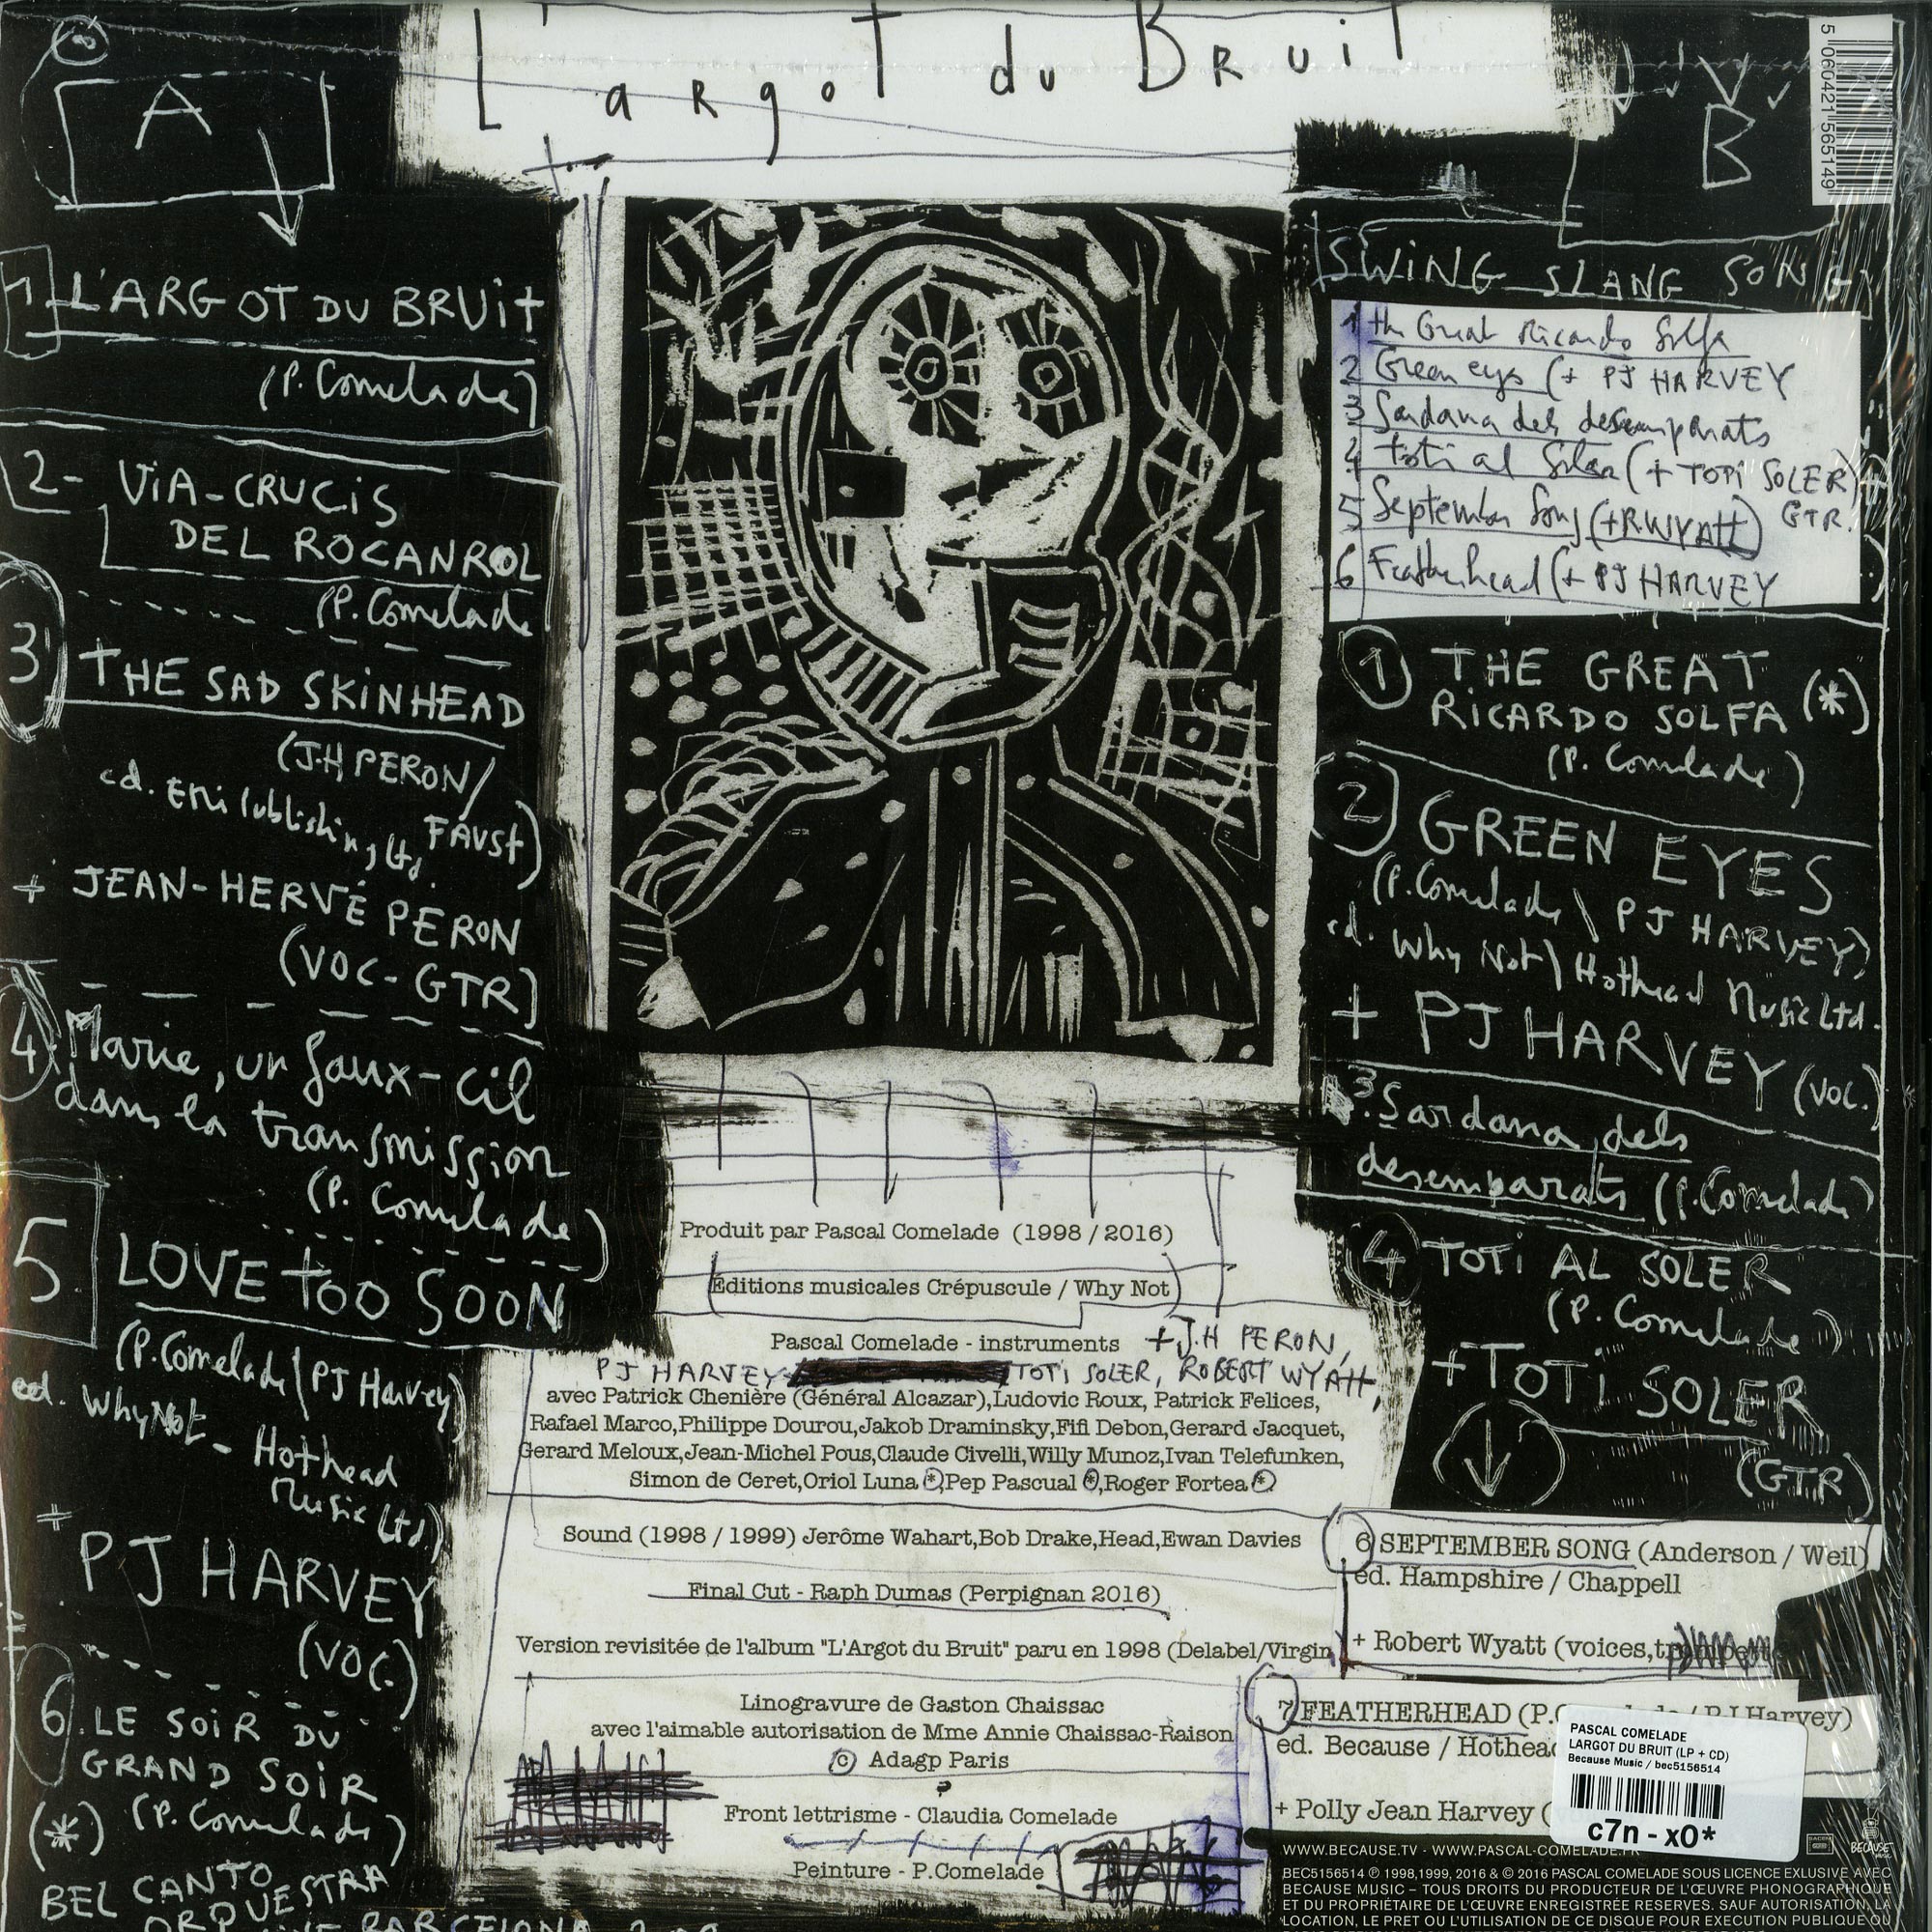 L'argot du Bruit
A
1 L'ARGOT DU BRUIT
(P. Comelade)
2- VIA-CRUCIS
DEL ROCANROL
(P. Comelade
3 THE SAD SKINHEAD
(J.H PERON/
FAUST)
ed. EMI Publishing Ltd.
+ JEAN-HERVÉ PERON
(VOC-GTR)
4 Marie, un faux-cil
dans la transmission
(P. Comelade)
5 LOVE TOO SOON
(P. Comelade \ PJ Harvey)
ed. Why Not - Hothead
Music Ltd.)
+ PJ HARVEY
(VOC.)
6. LE SOIR DU
GRAND SOIR
(*) (P. Comelade)
BEL CANTO
ORQUESTRA
Produit par Pascal Comelade (1998 / 2016)
Éditions musicales Crépuscule / Why Not
Pascal Comelade - instruments + J.H PERON,
PJ HARVEY TOTI SOLER, ROBERT WYATT,
avec Patrick Chenière (Général Alcazar),Ludovic Roux, Patrick Felices,
Rafael Marco,Philippe Dourou,Jakob Draminsky,Fifi Debon,Gerard Jacquet,
Gerard Meloux,Jean-Michel Pous,Claude Civelli,Willy Munoz,Ivan Telefunken,
Simon de Ceret,Oriol Luna *,Pep Pascual *,Roger Fortea *
Sound (1998 / 1999) Jerôme Wahart,Bob Drake,Head,Ewan Davies
Final Cut - Raph Dumas (Perpignan 2016)
Version revisitée de l'album "L'Argot du Bruit" paru en 1998 (Delabel/Virgin)
Linogravure de Gaston Chaissac
avec l'aimable autorisation de Mme Annie Chaissac-Raison
© Adagp Paris
Front lettrisme - Claudia Comelade
Peinture - P.Comelade
B
5 060421 565149
SWING SLANG SONG
1 the Great Ricardo Solfa
2 Green eyes (+ PJ HARVEY
3 Sardana dels desemparats
4 toti al Soler (+ TOTI SOLER)
GTR.
5 September Song (+R.WYATT)
6 Featherhead (+ PJ HARVEY
1 THE GREAT
RICARDO SOLFA (*)
(P. Comelade)
2 GREEN EYES
(P. Comelade \ PJ HARVEY)
ed. Why Not \ Hothead Music Ltd.
+ PJ HARVEY (VOC.)
3. Sardana dels
desemparats (P. Comelade)
4 TOTI AL SOLER
(P. Comelade)
+ TOTI SOLER
(GTR)
6 SEPTEMBER SONG (Anderson / Weil)
ed. Hampshire / Chappell
+ Robert Wyatt (voices,
7 FEATHERHEAD (P. Harvey)
ed. Because /
+ Polly Jean Harvey (
PASCAL COMELADE
LARGOT DU BRUIT (LP + CD)
Because Music / bec5156514
c7n - x0*
WWW.BECAUSE.TV - WWW.PASCAL-COMELADE.FR
BEC5156514 ℗ 1998,1999, 2016 & © 2016 PASCAL COMELADE SOUS LICENCE EXLUSIVE AVEC
BECAUSE MUSIC – TOUS DROITS DU PRODUCTEUR DE L'ŒUVRE PHONOGRAPHIQUE
ET DU PROPRIÉTAIRE DE L'ŒUVRE ENREGISTRÉE RESERVES. SAUF AUTORISATION, LA
LOCATION, LE PRET OU L'UTILISATION DE CE DISQUE POUR EXECUTION PUBLIQUE OU